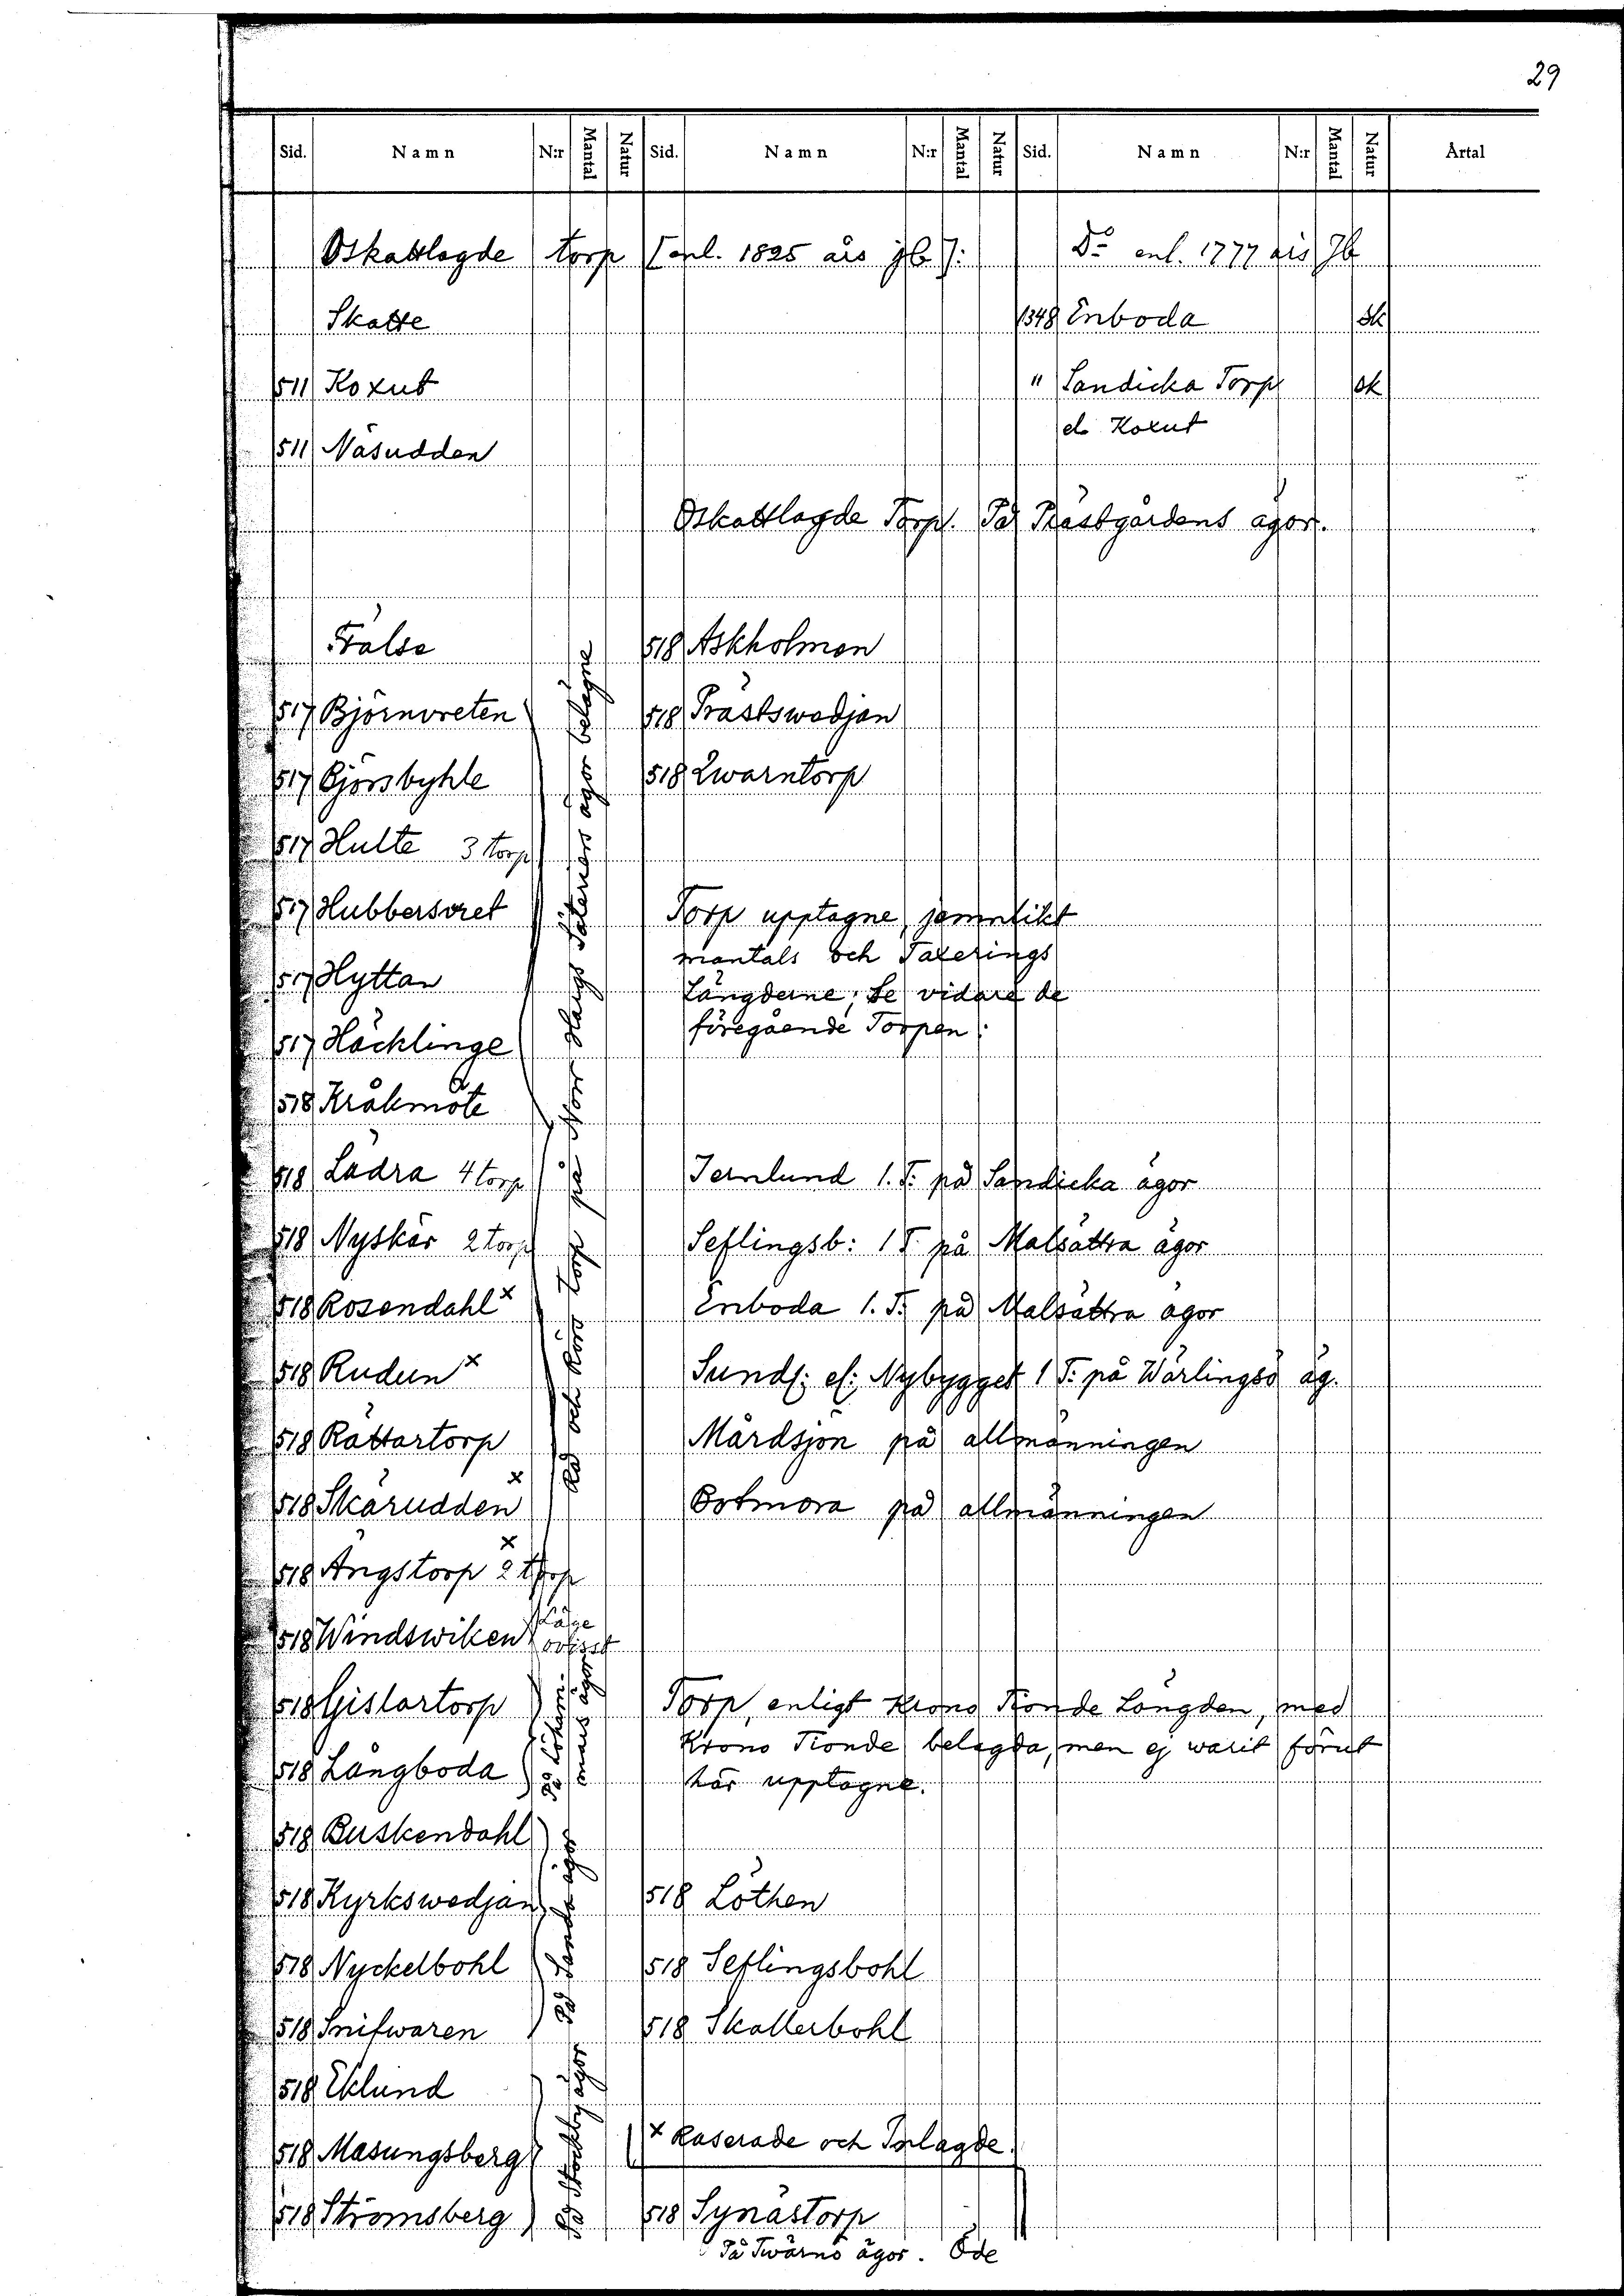 29
Sid. Namn N:r Mantal Natur Sid. Namn N:r Mantal Natur Sid. Namn N:r Mantal Natur Årtal
Oskattlagde torp [enl. 1825 års jb]:
Skatte
511 Koxut
511 Näsudden
Do enl. 1777 års Jb
1348 Enboda Sk
" Sandicka Torp Sk
el. Koxut
Oskattlagde Torp. På Prästgårdens ägor.
Frälse
517 Björnvreten
517 Gjörsbyhle
517 Hulte 3 torp
517 Hubbersvret
517 Hyttan
517 Häcklinge
518 Kråkmöte
518 Ladra 4 torp
518 Nyskär 2 torp
518 Rosendahl x
518 Rudun x
518 Rättartorp
518 Skärudden x
518 Ängstorp x 2 torp
Rå och Rörs torp på Norr Hargs Säteriers ägor belägne
518 Windswiken Läge ovisst
518 Gislartorp
518 Långboda
518 Buskendahl
518 Kyrkswedjan
518 Nyckelbohl
518 Snifwaren
På Sanda ägor
518 Eklund
518 Masungsberg
518 Strömsberg
518 Askholmen
518 Prästswedjan
518 Qwarntorp
Torp upptagne jemnlikt
mantals och Taxerings
Längderne; Se vidare de
föregående Torpen:
Jernlund 1. T: på Sandicka ägor
Seflingsb: 1 T. på Malsättra ägor
Enboda 1. T: på Malsättra ägor
Sunds: el: Nybygget 1 T: på Wärlingsö äg.
Mårdsjön på allmänningen
Ostmora på allmänningen
Torp, enligt Krono Tionde Längden, med
Krono Tionde belagda, men ej warit förut
här upptagne.
518 Löthen
518 Seflingsbohl
518 Skallerbohl
x Raserade och Inlagde.
518 Synästorp
På Twärnö ägor. Öde